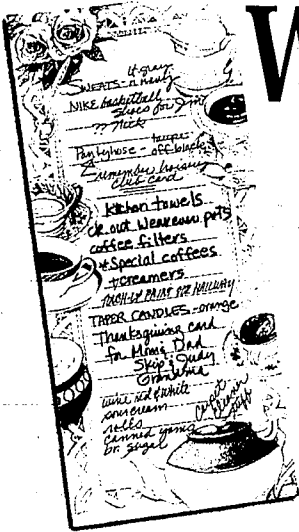 W
lt. gray
SWEATS - n navy
NIKE basketball
shoes for Jim
?? Nick
Pantyhose - taupe
off black
remember hosiery
club card
Kitchen towels
ck. out Weareverr pots
coffee filters
*Special coffees
+ creamers
TOUCH-UP PAINT FOR HALLWAY
TAPER CANDLES - orange
Thanksgiving card
for Mom & Dad
Skip & Judy
Grandma
wine red & white
sour cream
rolls
canned yams
br. sugar
Carpet
cleaner